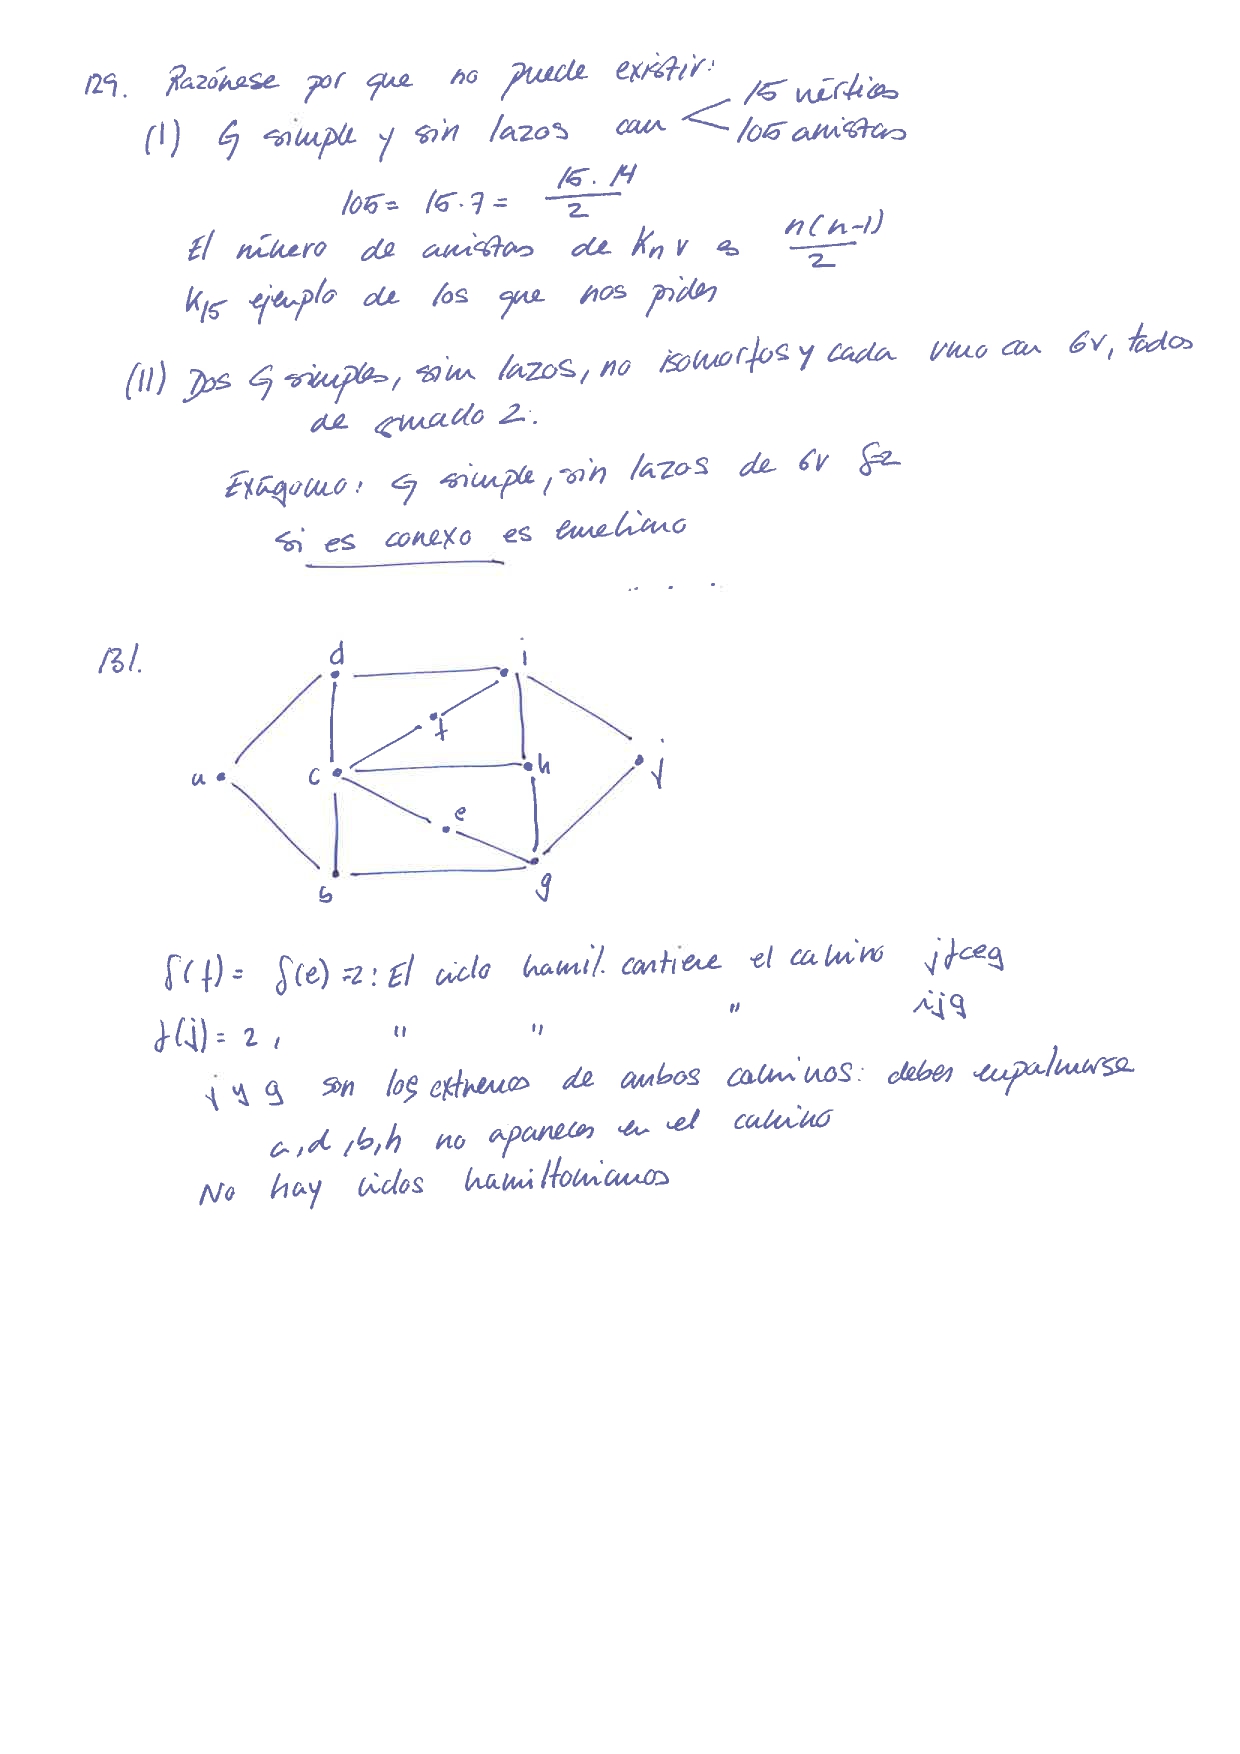 129. Razónese por que no puede existir:
(I) G simple y sin lazos con < 15 vértices
105 aristas
105 = 15·7 = 15·14 / 2
El número de aristas de Kn v es n(n-1) / 2
K15 ejemplo de los que nos piden
(II) Dos G simples, sin lazos, no isomorfos y cada uno con 6v, todos
de grado 2.
Exágono: G simple, sin lazos de 6v δ=2
si es conexo es euleriano
131.
d i
f
a c h j
e
b g
δ(f) = δ(e) = 2 : El ciclo hamil. contiene el camino ifceg
δ(j) = 2, " " " ijg
i y g son los extremos de ambos caminos: deben empalmarse
a,d,b,h no aparecen en el camino
No hay ciclos hamiltonianos